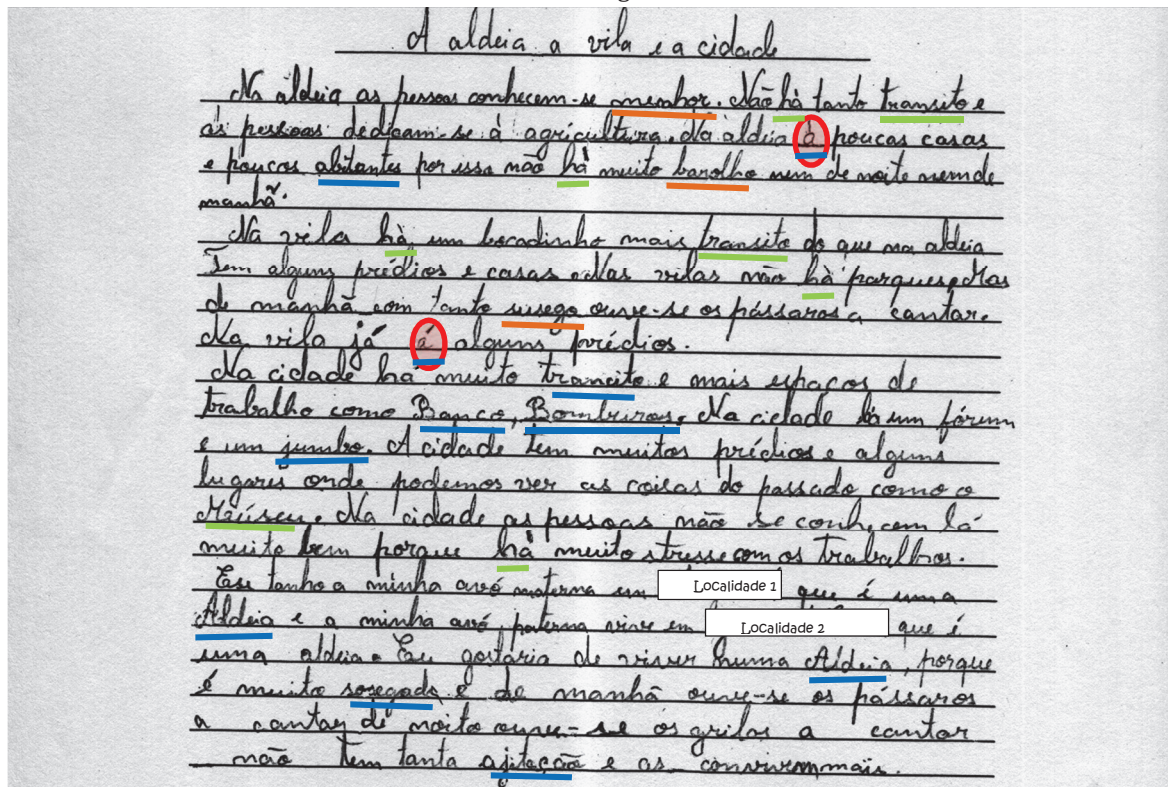 A aldeia a vila e a cidade
Na àldeia as pessoas conhecem-se menhor. Não hà tanto transito e
ás pessoas dedicam-se á agricultura. Na àldeia à poucas casas
e poucos abitantes por isso não hà muito barolho nem de noite nem de
manhã.
Na vila hà um bocadinho mais transito do que na aldeia
Tem alguns prédios e casas. Nas vilas não hà parques. Mas
de manhã com tanto susego ouve-se os pássaros a cantar.
Na vila já á alguns prédios.
Na cidade há muito trancito e mais espaços de
trabalho como Banco, Bombeiros. Na cidade há um fórum
e um jumbo. A cidade tem muitos prédios e alguns
lugares onde podemos ver as coisas do passado como o
Múiseu. Na cidade as pessoas não se conhecem lá
muito bem porque hà muito stresse com os trabalhos.
Eu tenho a minha avó materna em Localidade 1 que é uma
Aldeia e a minha avó paterna vive em Localidade 2 que é
uma aldeia. Eu gostaria de viver numa Aldeia, porque
é muito sosegada e de manhã ouve-se os pássaros
a cantar de noite ouve-se os grilos a cantar
não tem tanta ajitação e as convivem mais.